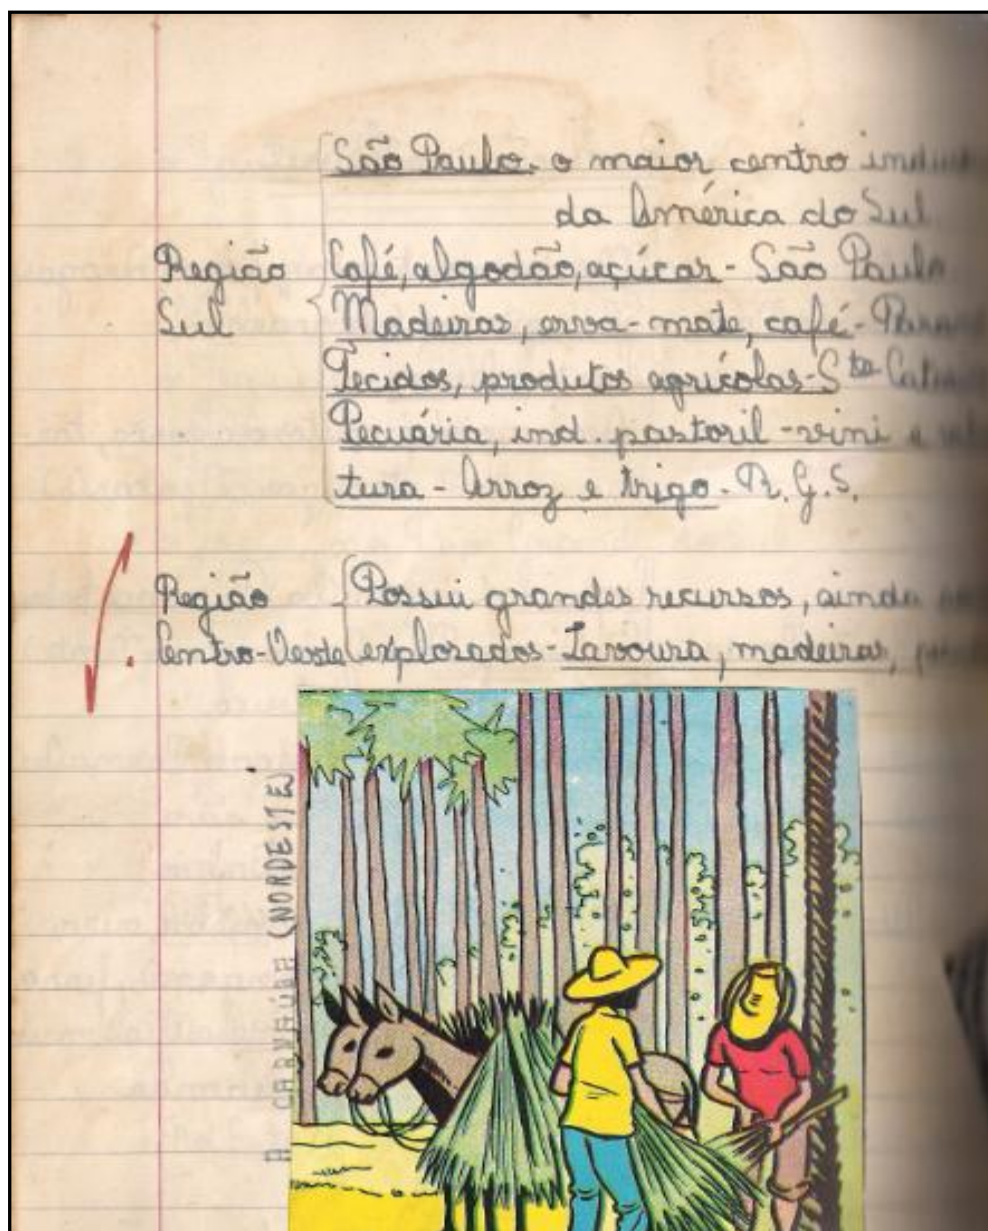 São Paulo - o maior centro indus
da América do Sul
Região Café, algodão, açúcar - São Paulo
Sul Madeiras, erva-mate, café - Paran
Tecidos, produtos agrícolas - Sta Cata
Pecuária, ind. pastoril - vini e
tura - Arroz e trigo - R. G. S.
Região Possui grandes recursos, ainda
Centro-Oeste explorados - Lavoura, madeiras,
A CARNAÚBA (NORDESTE)